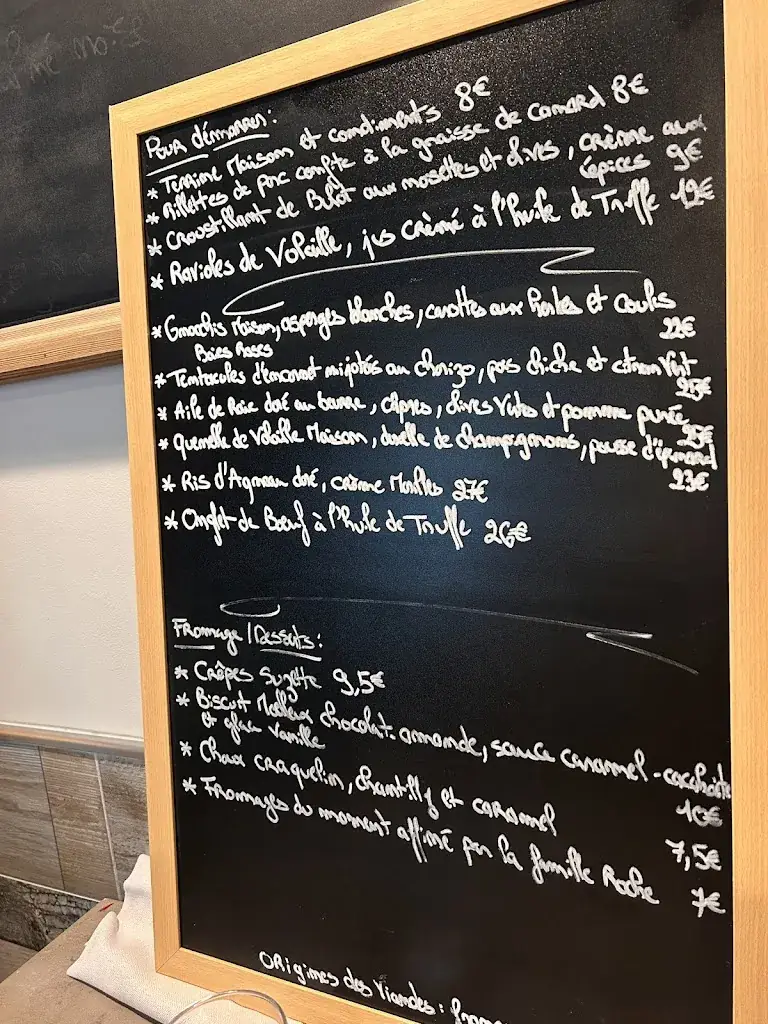 Pour démarrer:
* Terrine Maison et condiments 8€
* Rillettes de porc confite à la graisse de canard 8€
* Croustillant de Bulot aux noisettes et olives, crème aux
épices 9€
* Ravioles de Volaille, jus crèmé à l'huile de Truffe 12€
* Gnocchis Maison, asperges blanches, carottes aux herbes et coulis
Baies Roses 22€
* Tentacules d'encornet mijotés au chorizo, pois chiche et citron Vert
25€
* Aile de Raie doré au beurre, câpres, olives Vertes et pomme purée
* Quenelle de Volaille Maison, duxelle de champignons, pousse d'épinard
23€
* Ris d'Agneau doré, crème Morilles 27€
* Onglet de Bœuf à l'huile de Truffe 26€
Fromage / Desserts:
* Crêpes Suzette 9,5€
* Biscuit Moelleux chocolat-amande, sauce caramel-cacahuète
et glace Vanille 10€
* Choux craquelin, chantilly et caramel
7,5€
* Fromages du moment affiné par la famille Roche 7€
ORigines des Viandes :